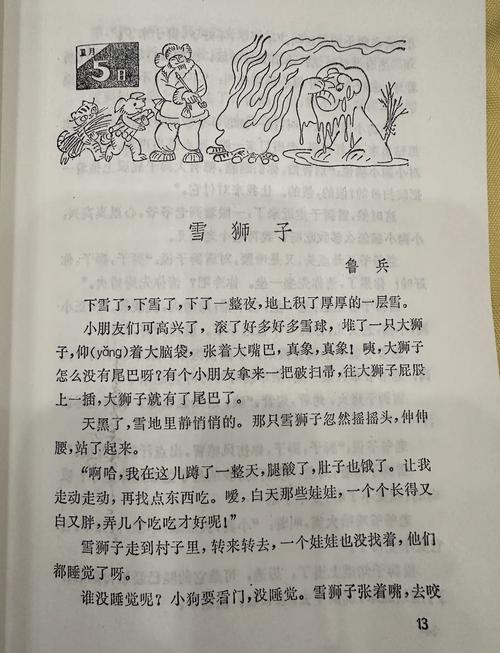 五月
5日
雪狮子
鲁兵
下雪了，下雪了，下了一整夜，地上积了厚厚的一层雪。
小朋友们可高兴了，滚了好多好多雪球，堆了一只大狮
子，仰(yǎng)着大脑袋，张着大嘴巴，真象，真象！咦，大狮子
怎么没有尾巴呀？有个小朋友拿来一把破扫帚，往大狮子屁股
上一插，大狮子就有了尾巴了。
天黑了，雪地里静悄悄的。那只雪狮子忽然摇摇头，伸伸
腰，站了起来。
“啊哈，我在这儿蹲了一整天，腿酸了，肚子也饿了。让我
走动走动，再找点东西吃。嗳，白天那些娃娃，一个个长得又
白又胖，弄几个吃吃才好呢！”
雪狮子走到村子里，转来转去，一个娃娃也没找着，他们
都睡觉了呀。
谁没睡觉呢？小狗要看门，没睡觉。雪狮子张着嘴，去咬
13